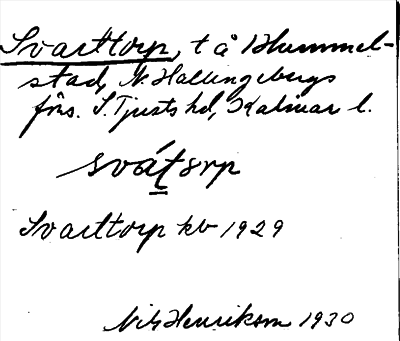 Svarttorp, t å Blummel-
stad, N. Hallingebergs
fös. S. Tjusts hd, Kalmar l.
sváṯorp
Svarttorp kb 1929
Nils Henrikson 1930